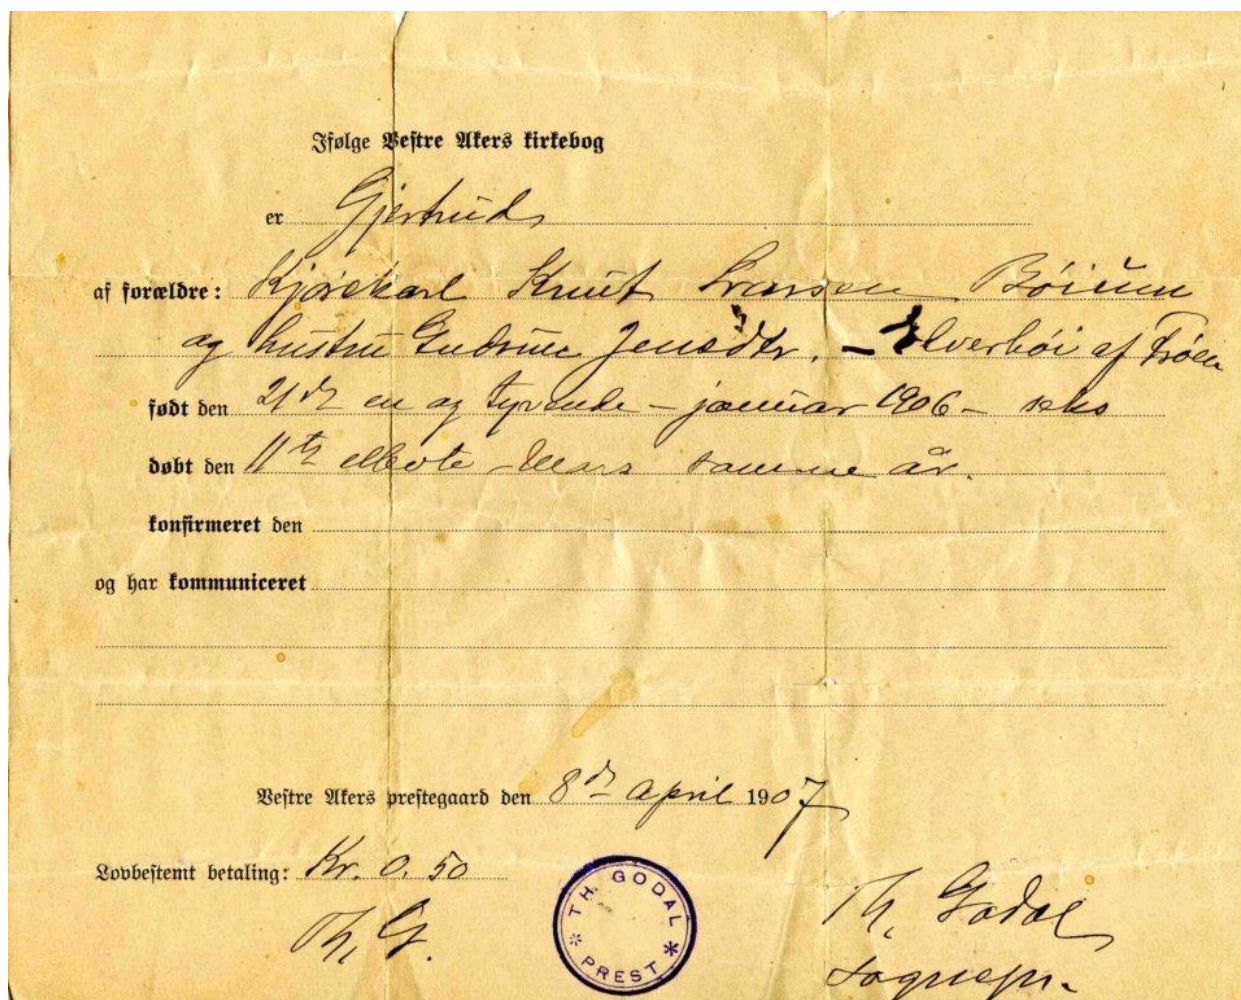 Ifølge Vestre Akers kirkebog
er Gjertrud
af forældre: Kjørekarl Knut Ivarsen Bøium
og hustru Gudrun Jensdtr. – Elverhøi af Frøen
født den 21de en og tyvende – januar 1906 – seks
døbt den 11te ellevte Mars samme år.
konfirmeret den
og har kommuniceret
Vestre Akers prestegaard den 8de april 1907
Lovbestemt betaling: Kr. 0.50
Th. G.
* TH. GODAL * PREST
Th. Godal
sognepr.